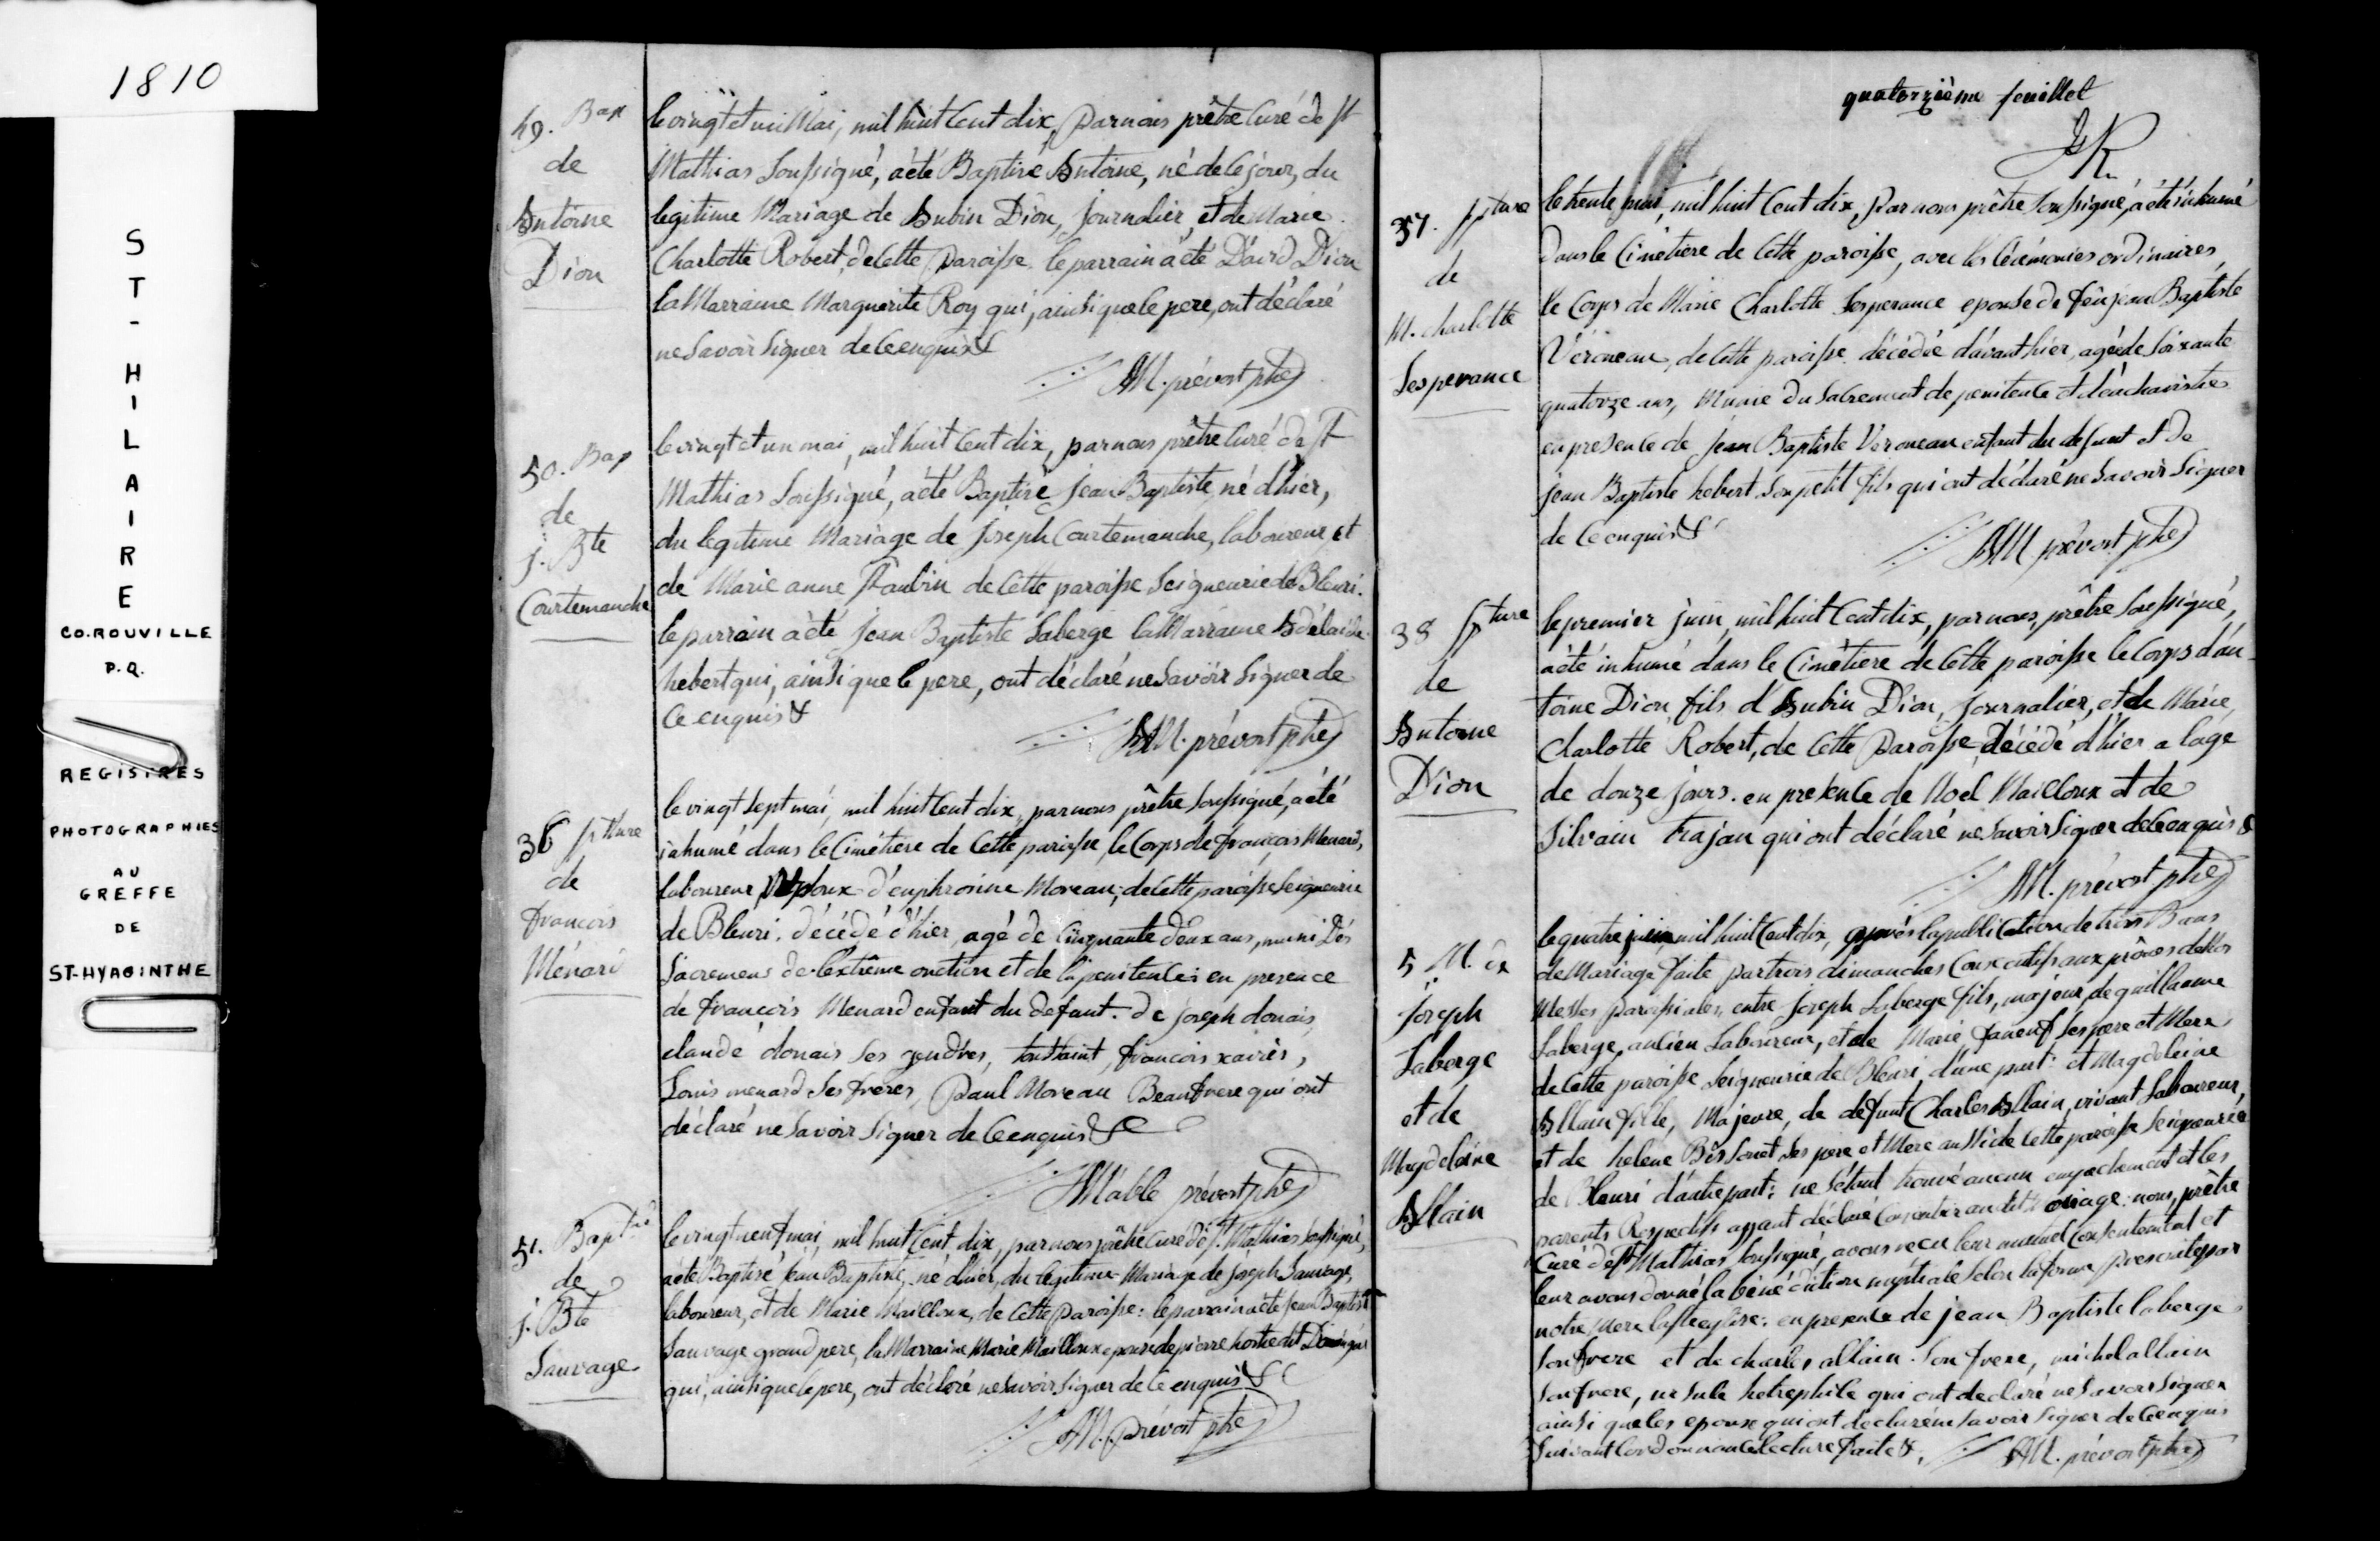 1810
ST-HILAIRE
CO. ROUVILLE
P.Q.
REGISTRES
PHOTOGRAPHIES
AU
GREFFE
DE
ST-HYACINTHE
49. Bap
de
Antoine
Dion
le vingt et un Mai, mil huit Cent dix, Par nous prêtre Curé de St
Mathias Soussigné, a été Baptisé Antoine, né de Ce jour, du
legitime Mariage de Aubin Dion, Journalier, et de Marie
Charlotte Robert, de Cette Paroisse. le parrain a été David Dion
la Marraine Marguerite Roy qui, ainsi que le pere, ont déclaré
ne Savoir Signer de Ce enquis &
AM. prévost ptre
50. Bap
de
j. Bte
Courtemanche
le vingt et un mai, mil huit Cent dix, par nous prêtre Curé de St
Mathias Soussigné, a été Baptisé Jean Baptiste, né d'hier,
du legitime Mariage de Joseph Courtemanche, laboureur, et
de Marie anne St aubin de Cette paroisse Seigneurie de Bleuri.
le parrain a été Jean Baptiste Laberge la Marraine Adélaide
hebert qui, ainsi que le pere, ont déclaré ne Savoir Signer de
Ce enquis &
AM. prévost ptre
36 spture
de
francois
Ménard
le vingt Sept mai, mil huit Cent dix, par nous prêtre Soussigné, a été
inhumé dans le Cimétiere de Cette paroisse, le Corps de francois Menard,
laboureur Epoux d'euphrosine Moreau, de Cette paroisse Seigneurie
de Bleuri. décédé d'hier, agé de Cinquante deux ans, muni Des
Sacremens de l'extrême onction et de la penitence: en presence
de francois Menard enfant du defunt. De joseph donais
claude donais Ses gendres, toussaint, francois xavier,
Louis menard Ses freres, Paul Moreau Beaufrere qui ont
déclaré ne Savoir Signer de Ce enquis &
AMable prévost ptre
51. Bapt
de
j. Bte
Sauvage
le vingt neuf mai, mil huit Cent dix, par nous prêtre Curé de St. Mathias Soussigné,
a été Baptisé Jean Baptiste, né d'hier, du legitime Mariage de Joseph Sauvage,
laboureur, et de Marie Mailloux, de Cette Paroisse: le parrain a été Jean Baptiste
Sauvage grand pere, la Marraine Marie Mailloux epouse de pierre
qui, ainsi que le pere, ont déclaré ne Savoir Signer de Ce enquis &
AM. prévost ptre
quatorzième feuillet
37. spture
de
M. charlotte
Lesperance
le trente mai, mil huit Cent dix, Par nous prêtre Soussigné, a été inhumé
dans le Cimétiere de Cette paroisse, avec les Cérémonies ordinaires,
le Corps de Marie Charlotte Lesperance epouse de feu jean Baptiste
Véroneau, de Cette paroisse. décédée d'avant hier, agée de Soixante
quatorze ans, Munie du Sacrement de penitence et d'euchauristies
en presence de Jean Baptiste Veroneau enfant du defunt et de
Jean Baptiste hebert Son petit fils qui ont déclaré ne Savoir Signer
de Ce enquis &
AM prévost ptre
38 spture
de
Antoine
Dion
le premier juin, mil huit Cent dix, par nous, prêtre Soussigné,
a été inhumé dans le Cimétiere de Cette paroisse le Corps d'an
toine Dion, fils d'Aubin Dion, Journalier, et de Marie
Charlotte Robert, de Cette Paroisse, décédé d'hier a lage
de douze jours. en presence de Noel Mailloux et de
Silvain trajan qui ont déclaré ne Savoir Signer de Ce enquis &
AM. prévost ptre
5 M. de
Joseph
Laberge
et de
Magdeleine
Allain
le quatre juin, mil huit Cent dix, après la publication de trois Bans
de Mariage faite par trois dimanches Consecutifs aux prônes de Nos
Messes paroissiales, entre Joseph Laberge fils, majeur, de guillaume
Laberge, ancien Laboureur, et de Marie faneuf Ses pere et Mere
de Cette paroisse Seigneurie de Bleuri d'une part: et Magdeleine
Allain fille, Majeure, de defunt Charles Allain, vivant Laboureur,
et de helene Bissonet Ses pere et Mere aussi de Cette paroisse Seigneurie
de Bleuri d'autre part: ne S'étant trouvé aucun empechement et les
parents Respectifs ayant déclaré Consentir audit Mariage. nous, prêtre
Curé de St Mathias Soussigné, avons recu leur mutuel Consentement et
leur avons donné la bénédiction nuptiale Selon la forme prescrite par
notre Mere la Ste eglise: en presence de jean Baptiste laberge
Son frere et de charles allain Son frere, michel allain
Son frere, qui ont declaré ne Savoir Signer
ainsi que les epoux qui ont declaré ne Savoir Signer de Ce enquis
Suivant lordonnance lecture faite &.
AM. prévost ptre